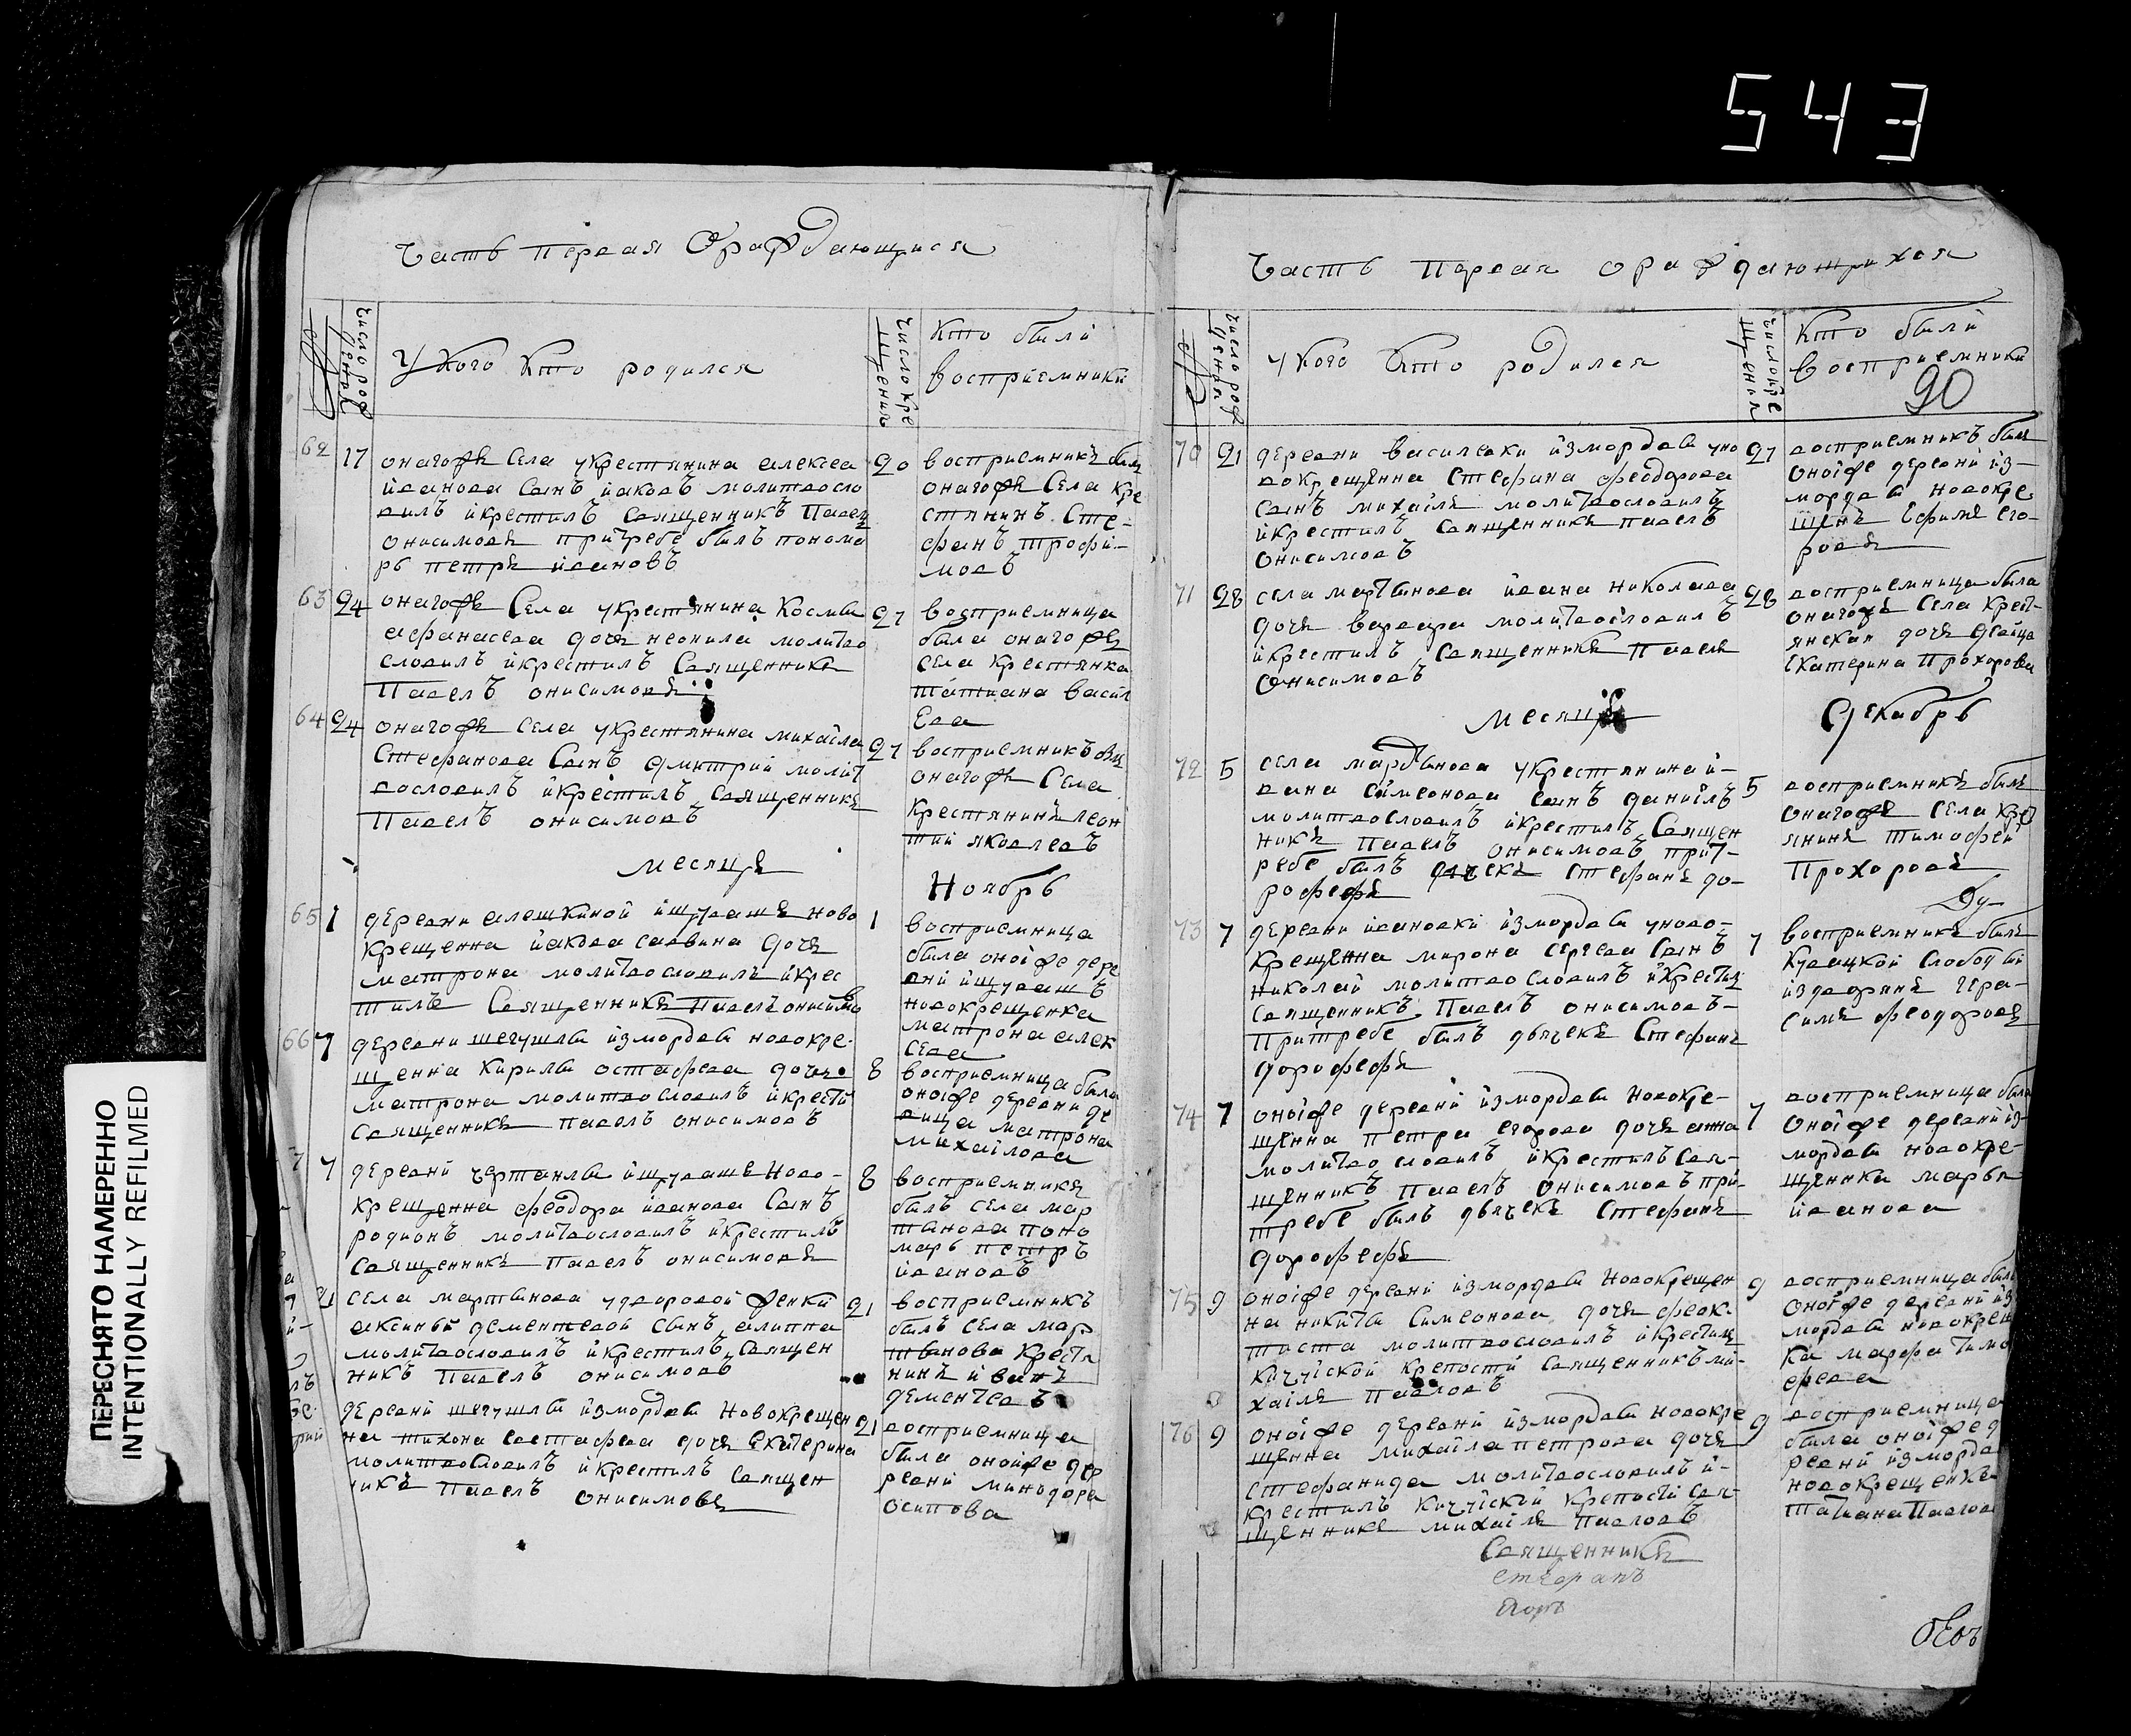 543
ПЕРЕСНЯТО НАМЕРЕННО
INTENTIONALLY REFILMED
Часть первая Ораждающися
число рождения
У кого кто родился
число крещения
кто были
восприемники
62 17 онагожъ села укрестьянина алексеа
иванова сынъ иаковъ молитвосло
вилъ икрестилъ священникъ павелъ
онисимовъ притребе былъ понома
рь петръ ивановъ
20 восприемникъ былъ
онагожъ села кре
стянинъ сте-
фанъ трофи-
мовъ
63 24 онагожъ села укрестьянина космы
афанасева дочь неонила молитво
словилъ икрестилъ священникъ
павелъ онисимовъ
27 восприемница
была онагожъ
села крестянка
татиана васил
ева
64 24 онагожъ села укрестьянина михаила
стефанова сынъ дмитрий молит
вословилъ икрестилъ священникъ
павелъ онисимовъ
27 восприемникъ был
онагожъ села
крестянинъ леон
тий яковлевъ
месяцъ Ноябрь
65 1 деревни алешкиной ищувашъ ново
крещенна иакова савина дочь
матрона молитвословилъ икрес
тилъ священникъ павелъ онисимо
1 восприемница
была оноиже дере
вни ищувашъ
новокрещенка
матрона алек
сева
66 7 деревни шегушлы измордвы новокре-
щенна кирилы остафева дочь
матрона молитвословилъ икрести
священникъ павелъ онисимовъ
8 восприемница была
оноиже деревни де
вица матрона
михаилова
7 7 деревни чертанлы ищувашъ ново-
крещенна феодора иванова сынъ
родионъ молитвословилъ икрестилъ
священникъ павелъ онисимовъ
8 восприемникъ
былъ села мар
тынова поно
марь петръ
ивановъ
21 села мартынова удворовой женки
аксиньи дементевой сынъ алиппа
молитвословилъ икрестилъ священ
никъ павелъ онисимовъ
21 восприемникъ
былъ села мар
тынова крестя
нинъ иванъ
дементевъ
деревни шегушлы измордвы новокрещен
на тихона евстафева дочь екатерина
молитвословилъ икрестилъ священ
никъ павелъ онисимовъ
21 восприемница
была оноиже де
ревни минодора
осипова
Часть первая ораждающихся
число рождения
у кого кто родился
число крещения
кто были
восприемники
90
70 21 деревни василевки измордвы уно
вокрещенна стефана феодорова
сынъ михаилъ молитвословилъ
икрестилъ священникъ павелъ
онисимовъ
27 восприемникъ былъ
оноиже деревни из-
мордвы новокре
щенъ ефимъ его-
ровъ
71 28 села мартынова ивана николаева
дочь варвара молитвословилъ
икрестилъ священникъ павелъ
онисимовъ
28 восприемница была
онагожъ села крест-
янская дочь девица
екатерина прохорова
месяцъ Декабрь
72 5 села мартынова укрестьянина и-
вана симеонова сынъ даниилъ
молитвословилъ икрестилъ священ
никъ павелъ онисимовъ прит-
ребе былъ дячекъ стефанъ до-
рофеевъ
5 восприемникъ былъ
онагожъ села крес
янинъ тимофей
прохоровъ
Ду-
73 7 деревни ивановки измордвы уново-
крещенна мирона сергеева сынъ
николай молитвословилъ икрестил
священникъ павелъ онисимовъ-
притребе былъ дьячекъ стефанъ
дорофеевъ
7 восприемникъ былъ
кувацкой слободы
издворянъ гера-
симъ феодоровъ
74 7 оноиже деревни измордвы новокре-
щенна петра егорова дочь анна
молитвословилъ икрестилъ свя-
щенникъ павелъ онисимовъ при-
требе былъ дьячекъ стефанъ
дорофеевъ
7 восприемница была
оноиже деревни из-
мордвы новокре-
щенка марья
иванова
75 9 оноиже деревни измордвы новокрещен
на никиты симеонова дочь феок-
тиста молитвословилъ икрестил
кичуйской крепости священникъ ми-
хаилъ павловъ
9 восприемница была
оноиже деревни из
мордвы новокрещ
ка марфа тимо
феева
76 9 оноиже деревни измордвы новокре
щенна михаила петрова дочь
стефанида молитвословилъ и-
крестилъ кичуйской крепости свя-
щенникъ михаилъ павловъ
9 восприемница
была оноиже д
ревни измордв
новокрещенка
татиана павлов
Священникъ